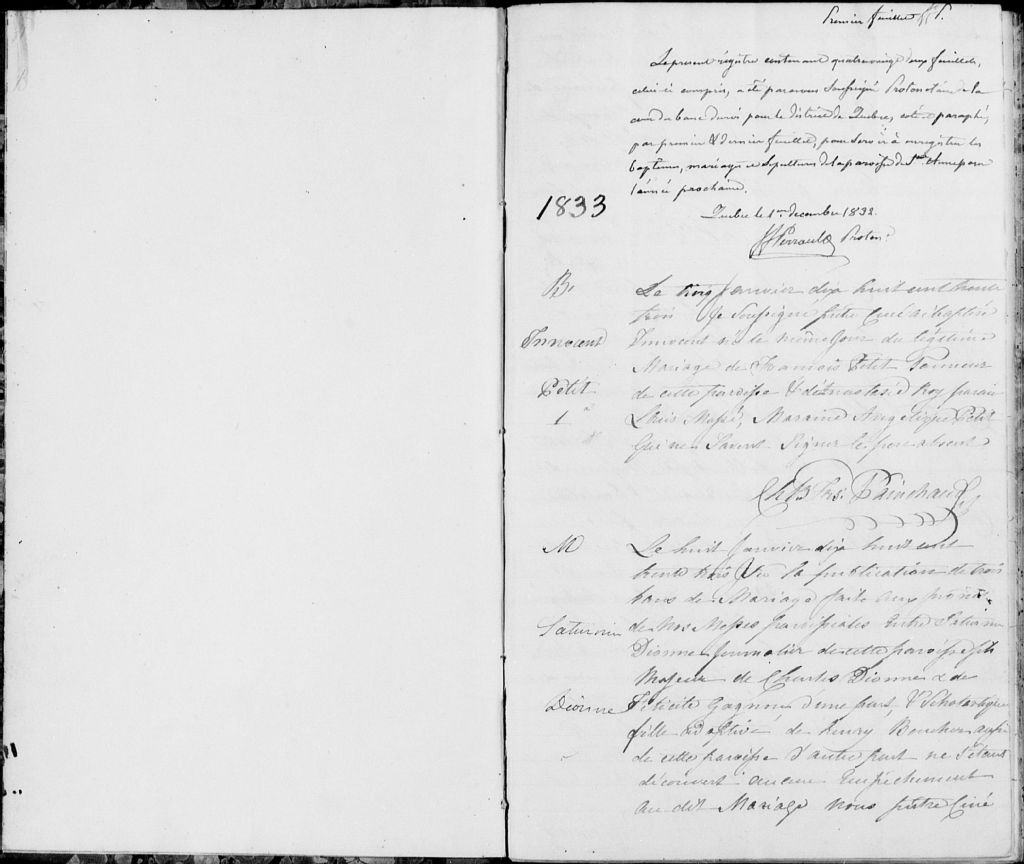 Premier feuillet
Le present régistre contenant quatrevingt feuillets,
celui-ci compris, a été par nous soussigné Protonotaire de la
cour du banc du roi pour le district de Québec, coté et paraphé,
par premier & dernier feuillet, pour servir à enregistrer les
baptemes, mariages et sepultures de la paroisse de Ste Anne pour
l'année prochaine.
Québec le 1er decembre 1832.
Perrault Proton.
1833
B.
Innocent
Petit
1
Le trois Janvier dix huit cent trente
trois Je Soussigné prêtre Curé ai baptisé
Innocent né le même Jour du légitime
Mariage de François Petit
de cette paroisse & Roy parain
Louis Maraine Angelique Petit
Qui ne Savent Signer le pere absent
Painchaud
M
Saturnin
Dionne
Le huit Janvier dix huit cent
trente trois Vu la publication de trois
bans de Mariage faite aux prônes
de Nos Messes paroissiales entre Saturnin
Dionne Journalier de cette paroisse fils
Majeur de Charles Dionne & de
Felicité Gagnon d'une part, & Scholastique
fille adoptive de Henry Boucher aussi
de cette paroisse d'autre part ne S'étant
découvert aucun Empêchement
au dit Mariage Nous prêtre Curé